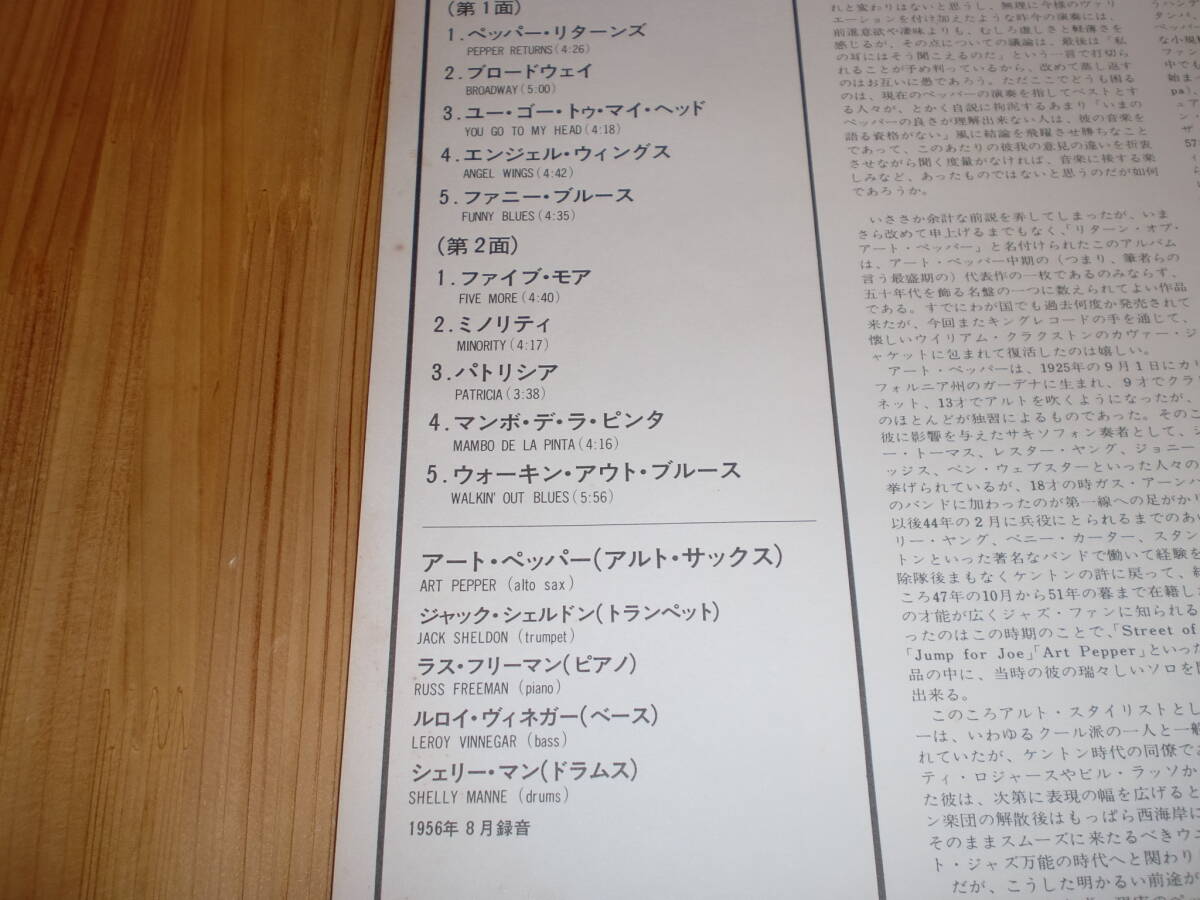 (第1面)
1.ペッパー・リターンズ
PEPPER RETURNS(4:26)
2.ブロードウェイ
BROADWAY(5:00)
3.ユー・ゴー・トゥ・マイ・ヘッド
YOU GO TO MY HEAD(4:18)
4.エンジェル・ウィングス
ANGEL WINGS(4:42)
5.ファニー・ブルース
FUNNY BLUES(4:35)
(第2面)
1.ファイブ・モア
FIVE MORE(4:40)
2.ミノリティ
MINORITY(4:17)
3.パトリシア
PATRICIA(3:38)
4.マンボ・デ・ラ・ピンタ
MAMBO DE LA PINTA(4:16)
5.ウォーキン・アウト・ブルース
WALKIN' OUT BLUES(5:56)
アート・ペッパー(アルト・サックス)
ART PEPPER (alto sax)
ジャック・シェルドン(トランペット)
JACK SHELDON (trumpet)
ラス・フリーマン(ピアノ)
RUSS FREEMAN (piano)
ルロイ・ヴィネガー(ベース)
LEROY VINNEGAR (bass)
シェリー・マン(ドラムス)
SHELLY MANNE (drums)
1956年8月録音
れと変わりはないと思うし、無理に今様のヴァリ
エーションを付け加えたような昨今の演奏には、
前進意欲や凄味よりも、むしろ虚しさと軽薄さを
感じるが、その点についての議論は、最後は「私
の耳にはそう聞こえるのだ」という一言で打切ら
れることが予め判っているから、改めて蒸し返す
のはお互いに愚であろう。ただここでどうも困る
のは、現在のペッパーの演奏を指してベストとす
る人々が、とかく自説に拘泥するあまり「いまの
ペッパーの良さが理解出来ない人は、彼の音楽を
語る資格がない」風に結論を飛躍させ勝ちなこと
であって、このあたりの彼我の意見の違いを折衷
させながら聞く度量がなければ、音楽に接する楽
しみなど、あったものではないと思うのだが如何
であろうか。
いささか余計な前説を弄してしまったが、いま
さら改めて申上げるまでもなく、「リターン・オブ・
アート・ペッパー」と名付けられたこのアルバム
は、アート・ペッパー中期の(つまり、筆者らの
言う最盛期の)代表作の一枚であるのみならず、
五十年代を飾る名盤の一つに数えられてよい作品
である。すでにわが国でも過去何度か発売されて
来たが、今回またキングレコードの手を通じて、
懐しいウイリアム・クラクストンのカヴァー・ジ
ャケットに包まれて復活したのは嬉しい。
アート・ペッパーは、1925年の9月1日にカリ
フォルニア州のガーデナに生まれ、9才でクラ
ネット、13才でアルトを吹くようになったが、
のほとんどが独習によるものであった。そのこ
彼に影響を与えたサキソフォン奏者として、ジ
ー・トーマス、レスター・ヤング、ジョニー・
ッジス、ベン・ウェブスターといった人々の
挙げられているが、18才の時ガス・アーンハ
のバンドに加わったのが第一線への足がかり
以後44年の2月に兵役にとられるまでのあい
リー・ヤング、ベニー・カーター、スタン
トンといった著名なバンドで働いて経験を
除隊後まもなくケントンの許に戻って、結
ころ47年の10月から51年の暮まで在籍し
の才能が広くジャズ・ファンに知られる
ったのはこの時期のことで、「Street of
「Jump for Joe」「Art Pepper」といった
品の中に、当時の彼の瑞々しいソロを
出来る。
このころアルト・スタイリストとし
ーは、いわゆるクール派の一人と一
れていたが、ケントン時代の同僚であ
ティ・ロジャースやビル・ラッソか
た彼は、次第に表現の幅を広げると
ン楽団の解散後はもっぱら西海岸に
そのままスムーズに来たるべきウエ
ト・ジャズ万能の時代へと関わり
だが、こうした明かるい前途が
タンバ
ペッパー
な小規模
ファン
中でも
始ま
pa)、
ュア
ン、
ザ
57